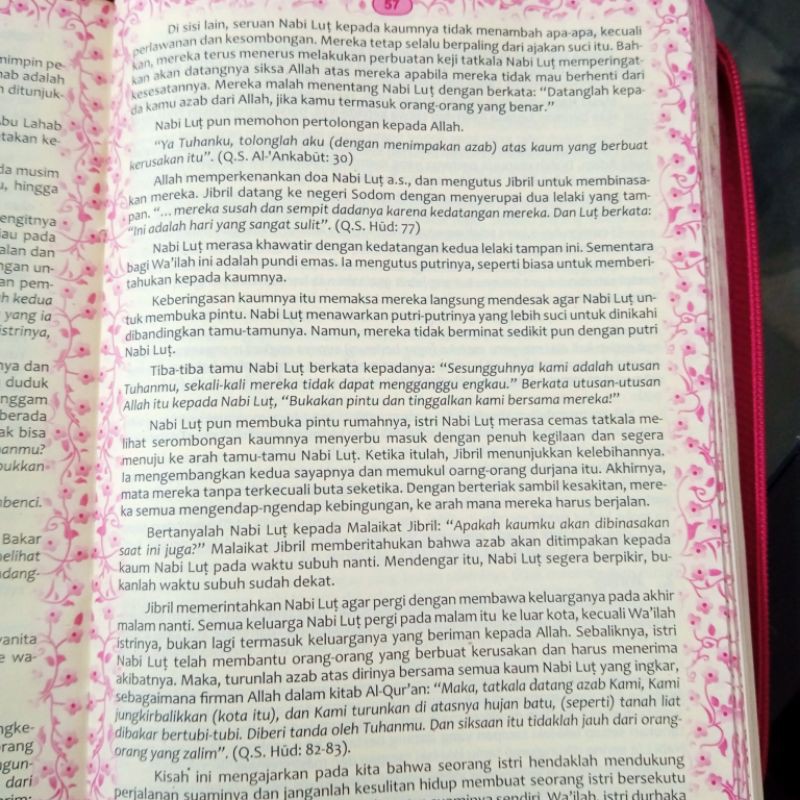 57
Di sisi lain, seruan Nabi Luṭ kepada kaumnya tidak menambah apa-apa, kecuali
perlawanan dan kesombongan. Mereka tetap selalu berpaling dari ajakan suci itu. Bah-
kan, mereka terus menerus melakukan perbuatan keji tatkala Nabi Luṭ memperingat-
kan akan datangnya siksa Allah atas mereka apabila mereka tidak mau berhenti dari
kesesatannya. Mereka malah menentang Nabi Luṭ dengan berkata: “Datanglah kepa-
da kamu azab dari Allah, jika kamu termasuk orang-orang yang benar.”
Nabi Luṭ pun memohon pertolongan kepada Allah.
“Ya Tuhanku, tolonglah aku (dengan menimpakan azab) atas kaum yang berbuat
kerusakan itu”. (Q.S. Al-'Ankabūt: 30)
Allah memperkenankan doa Nabi Luṭ a.s., dan mengutus Jibril untuk membinasa-
kan mereka. Jibril datang ke negeri Sodom dengan menyerupai dua lelaki yang tam-
pan. “... mereka susah dan sempit dadanya karena kedatangan mereka. Dan Luṭ berkata:
“Ini adalah hari yang sangat sulit”. (Q.S. Hūd: 77)
Nabi Luṭ merasa khawatir dengan kedatangan kedua lelaki tampan ini. Sementara
bagi Wa’ilah ini adalah pundi emas. Ia mengutus putrinya, seperti biasa untuk memberi-
tahukan kepada kaumnya.
Keberingasan kaumnya itu memaksa mereka langsung mendesak agar Nabi Luṭ un-
tuk membuka pintu. Nabi Luṭ menawarkan putri-putrinya yang lebih suci untuk dinikahi
dibandingkan tamu-tamunya. Namun, mereka tidak berminat sedikit pun dengan putri
Nabi Luṭ.
Tiba-tiba tamu Nabi Luṭ berkata kepadanya: “Sesungguhnya kami adalah utusan
Tuhanmu, sekali-kali mereka tidak dapat mengganggu engkau.” Berkata utusan-utusan
Allah itu kepada Nabi Luṭ, “Bukakan pintu dan tinggalkan kami bersama mereka!”
Nabi Luṭ pun membuka pintu rumahnya, istri Nabi Luṭ merasa cemas tatkala me-
lihat serombongan kaumnya menyerbu masuk dengan penuh kegilaan dan segera
menuju ke arah tamu-tamu Nabi Luṭ. Ketika itulah, Jibril menunjukkan kelebihannya.
Ia mengembangkan kedua sayapnya dan memukul oarng-orang durjana itu. Akhirnya,
mata mereka tanpa terkecuali buta seketika. Dengan berteriak sambil kesakitan, mere-
ka semua mengendap-ngendap kebingungan, ke arah mana mereka harus berjalan.
Bertanyalah Nabi Luṭ kepada Malaikat Jibril: “Apakah kaumku akan dibinasakan
saat ini juga?” Malaikat Jibril memberitahukan bahwa azab akan ditimpakan kepada
kaum Nabi Luṭ pada waktu subuh nanti. Mendengar itu, Nabi Luṭ segera berpikir, bu-
kanlah waktu subuh sudah dekat.
Jibril memerintahkan Nabi Luṭ agar pergi dengan membawa keluarganya pada akhir
malam nanti. Semua keluarga Nabi Luṭ pergi pada malam itu ke luar kota, kecuali Wa’ilah
istrinya, bukan lagi termasuk keluarganya yang beriman kepada Allah. Sebaliknya, istri
Nabi Luṭ telah membantu orang-orang yang berbuat kerusakan dan harus menerima
akibatnya. Maka, turunlah azab atas dirinya bersama semua kaum Nabi Luṭ yang ingkar,
sebagaimana firman Allah dalam kitab Al-Qur’an: “Maka, tatkala datang azab Kami, Kami
jungkirbalikkan (kota itu), dan Kami turunkan di atasnya hujan batu, (seperti) tanah liat
dibakar bertubi-tubi. Diberi tanda oleh Tuhanmu. Dan siksaan itu tidaklah jauh dari orang-
orang yang zalim”. (Q.S. Hūd: 82-83).
Kisah ini mengajarkan pada kita bahwa seorang istri hendaklah mendukung
perjalanan suaminya dan janganlah kesulitan hidup membuat seorang istri bersekutu
suaminya sendiri. Wa’ilah, istri durhaka